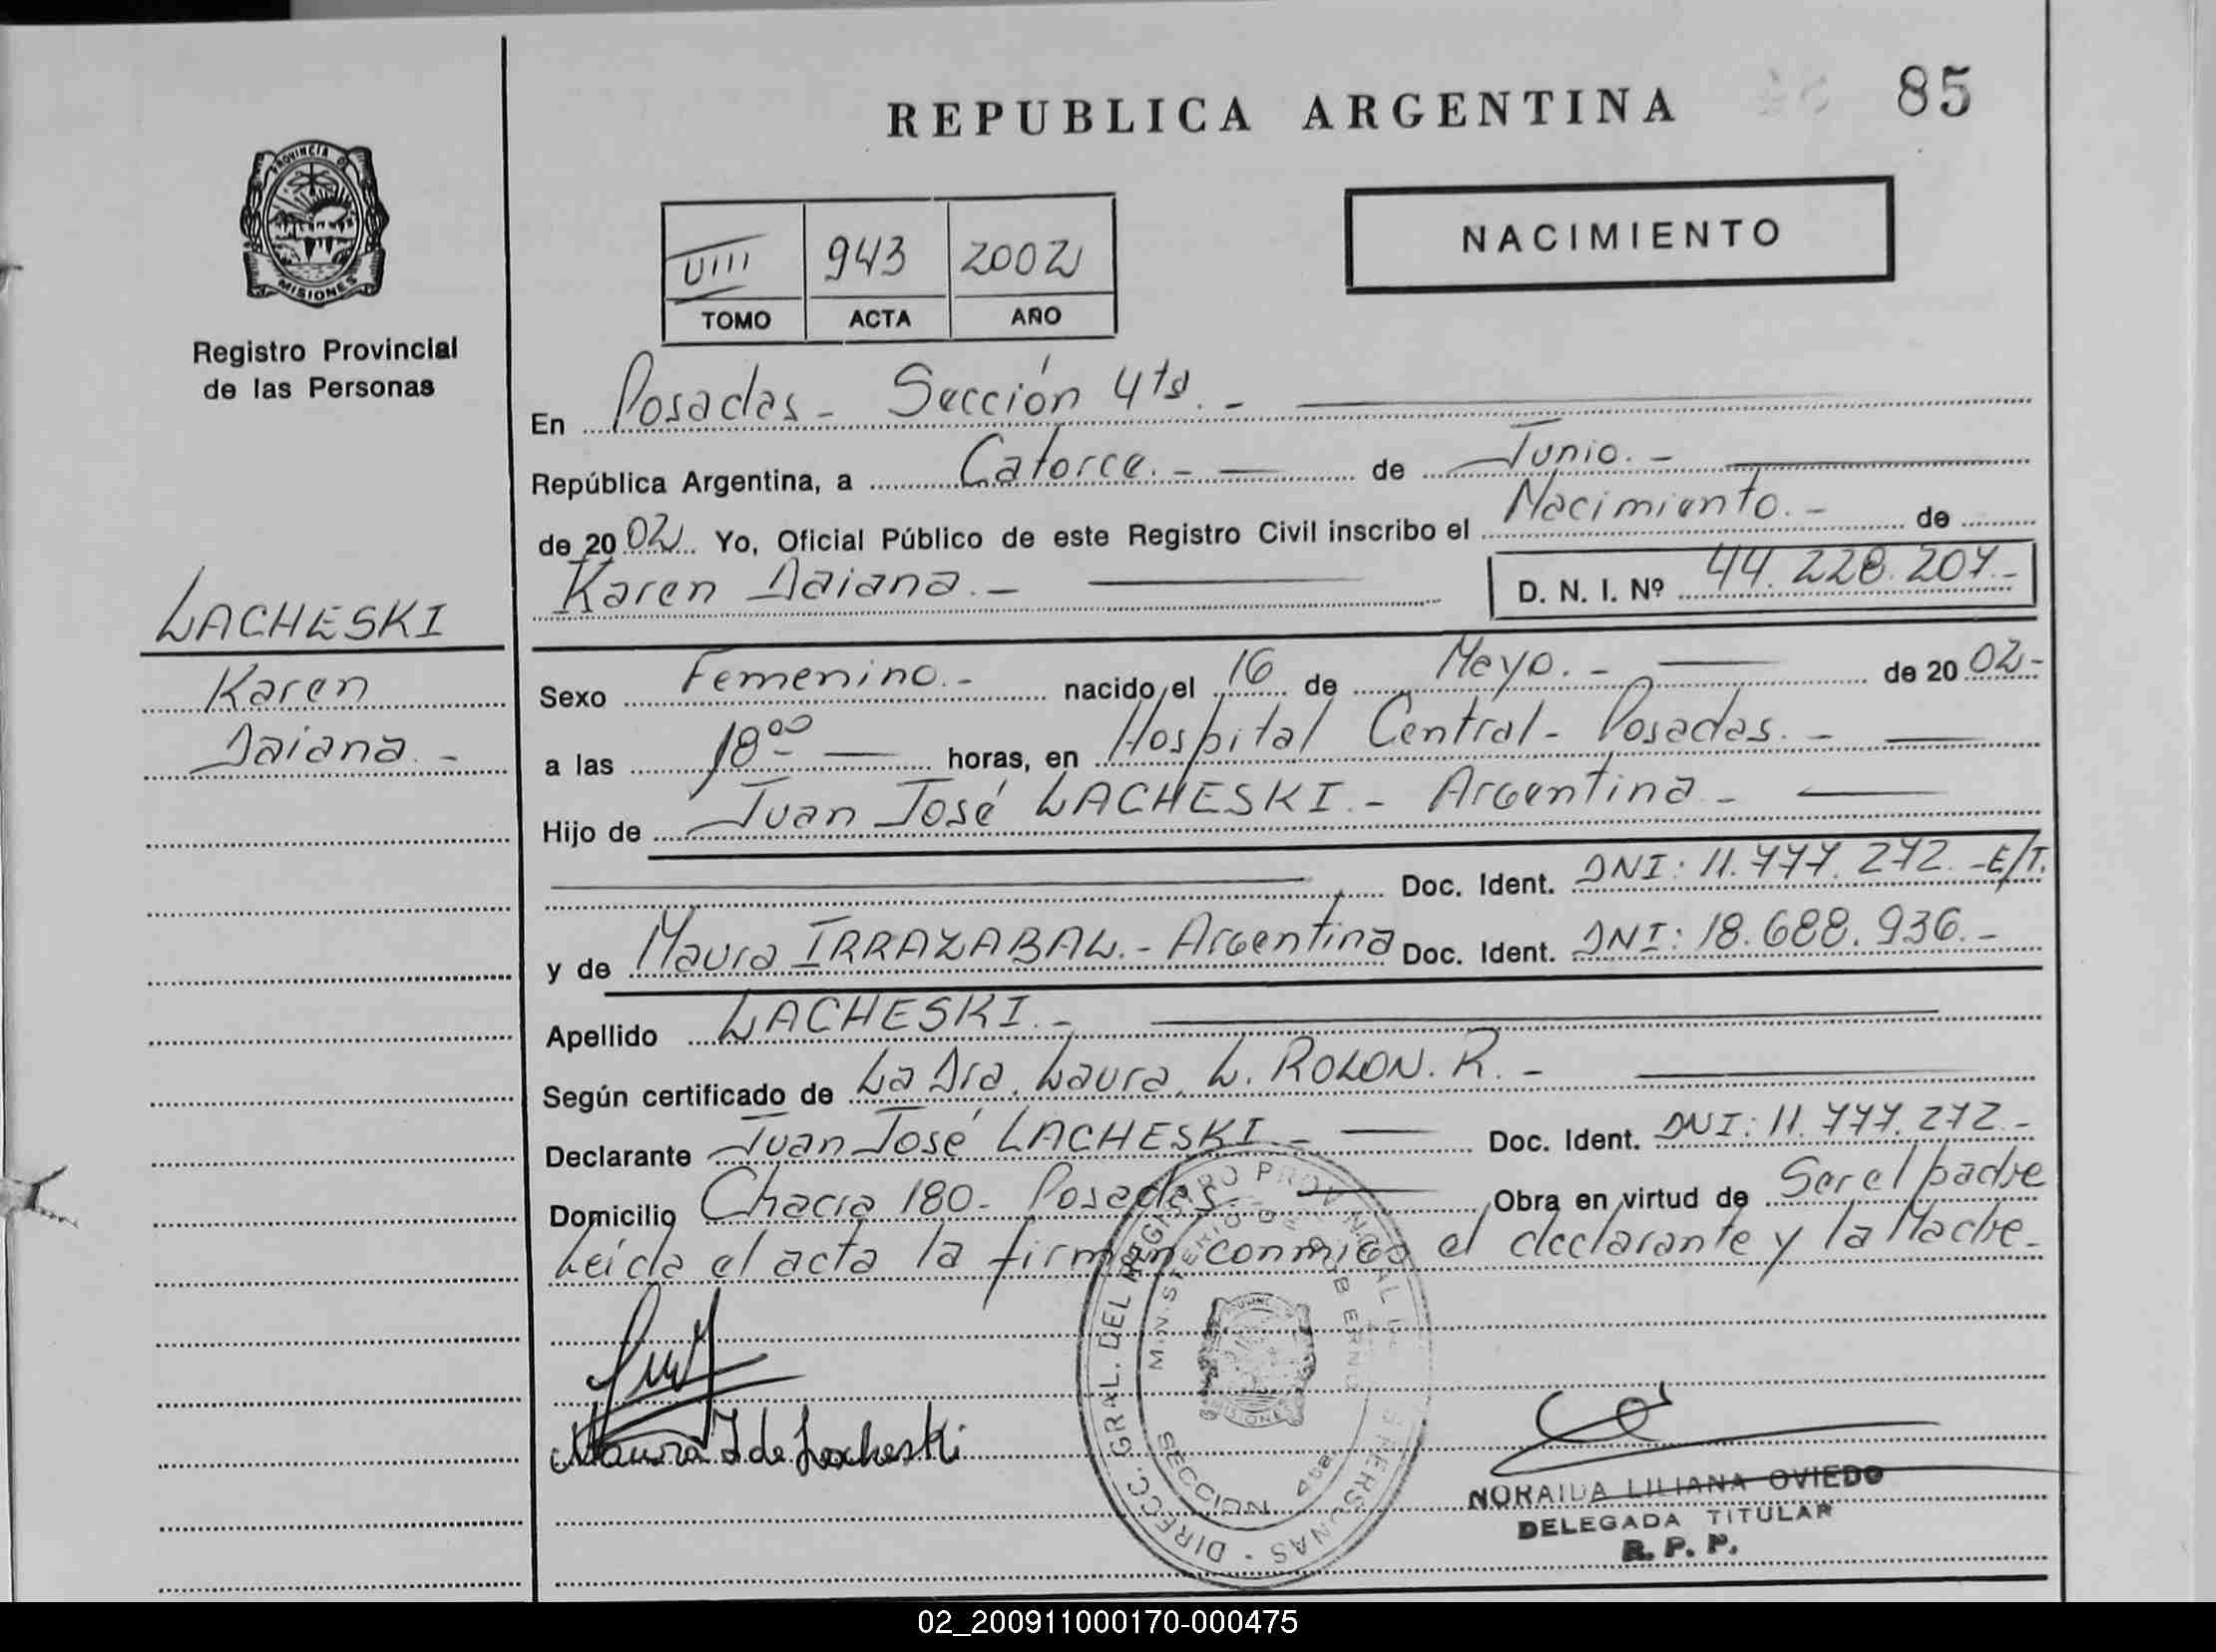 REPUBLICA ARGENTINA
85
PROVINCIA DE
MISIONES
Registro Provincial
de las Personas
VIII 943 2002
TOMO ACTA AÑO
NACIMIENTO
En Posadas - Sección 4ta. -
República Argentina, a Catorce. - de Junio. -
de 2002 Yo, Oficial Público de este Registro Civil inscribo el Nacimiento. - de
Karen Daiana. -
D. N. I. Nº 44.228.207.-
LACHESKI
Karen
Daiana. -
Sexo Femenino. - nacido el 16 de Mayo. - de 2002-
a las 18 00 horas, en Hospital Central - Posadas. -
Hijo de Juan José LACHESKI. - Argentina -
Doc. Ident. DNI: 11.777.272.-E/T.
y de Maura IRRAZABAL. - Argentina Doc. Ident. DNI: 18.688.936.-
Apellido LACHESKI. -
Según certificado de La Dra. Laura. L. ROLON. R. -
Declarante Juan José LACHESKI - Doc. Ident. DNI: 11.777.272.-
Domicilio Chacra 180- Posadas. Obra en virtud de Ser el padre
Leida el acta la firman conmigo el declarante y la Madre-
Maura I de Lacheski
DIRECC. GRAL. DEL REGISTRO PROVINCIAL DE LAS PERSONAS
MINISTERIO DE GOBIERNO
MISIONES
SECCION 4ta
NORAIDA LILIANA OVIEDO
DELEGADA TITULAR
R. P. P.
02_200911000170-000475